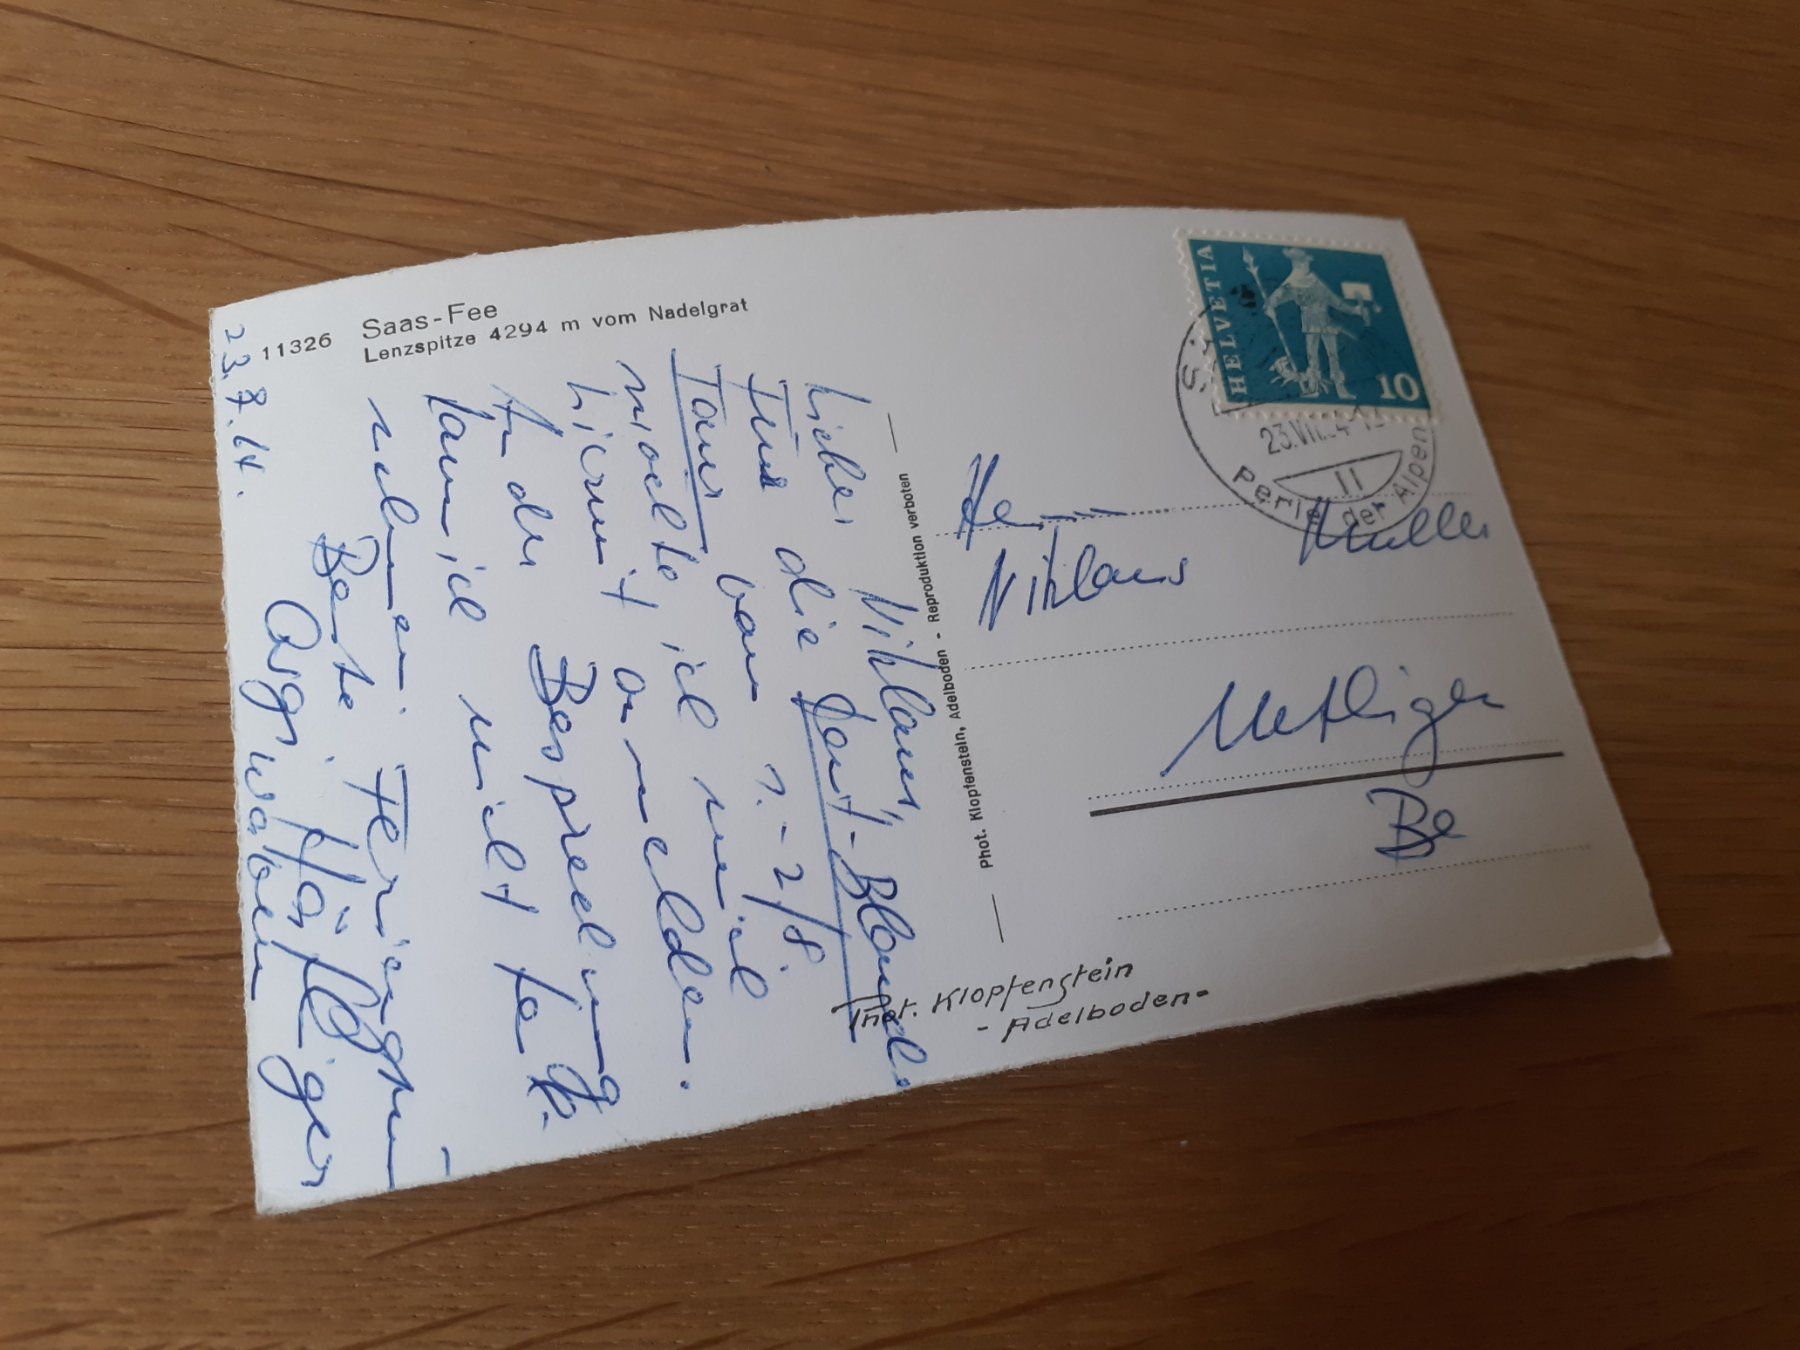 11326 Saas-Fee
Lenzspitze 4294 m vom Nadelgrat
23.7.64.
Lieber Niklaus,
Für die Dent-Blanche
Tour vom 1.-2/8
möchte ich mich
hiermit anmelden.
An der Besprechung
kann ich nicht teil-
nehmen. Feriengru
Beste
Häfliger
Phot. Klopfenstein, Adelboden - Reproduktion verboten
HELVETIA
10
23.VII.64-1
11
Perle der Alpen
Herrn
Niklaus Müller
Uettligen
Be
Phot. Klopfenstein
- Adelboden -